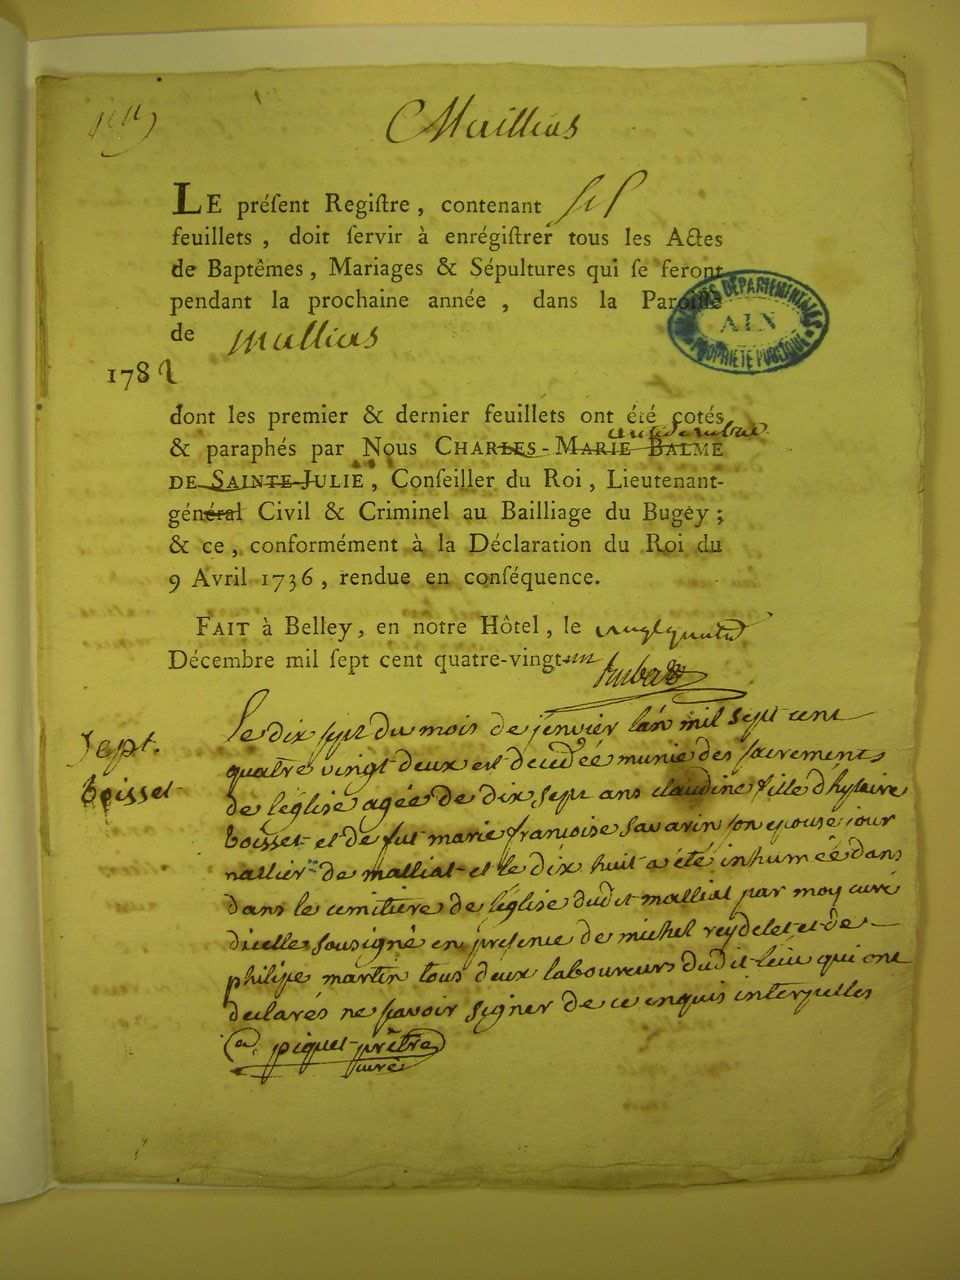 Maillias
LE préſent Regiſtre, contenant ſix
feuillets, doit ſervir à enrégiſtrer tous les Actes
de Baptêmes, Mariages & Sépultures qui ſe feront
pendant la prochaine année, dans la Paroiſſe
de mallias
1782
ARCHIVES DÉPARTEMENTALES
AIN
PROPRIÉTÉ PUBLIQUE
dont les premier & dernier feuillets ont été cotés
& paraphés par Nous CHARLES-MARIE BALME
DE SAINTE-JULIE, Conſeiller du Roi, Lieutenant-
général Civil & Criminel au Bailliage du Bugey;
& ce, conformément à la Déclaration du Roi du
9 Avril 1736, rendue en conſéquence.
FAIT à Belley, en notre Hôtel, le vingt quatre
Décembre mil ſept cent quatre-vingt-un
Sept.
boisset
Le dix sept du mois de jenvier lan mil sept cent
quatre vingt deux est decedée munie des sacrements
de l'église agée de dix sept ans claudine fille d'hylaire
boisset et de fut marie françoise savarin son epouse jour
nallier de malliat et le dix huit a été inhumée dans
dans le cemitiere de l'église dudit malliat par moy curé
dicelle sousigné en presence de michel reydelet et de
philipe martin tous deux laboureurs dudit lieu qui ont
declarés ne savoir signer de ce enquis interpellés
piquet prêtre
curé